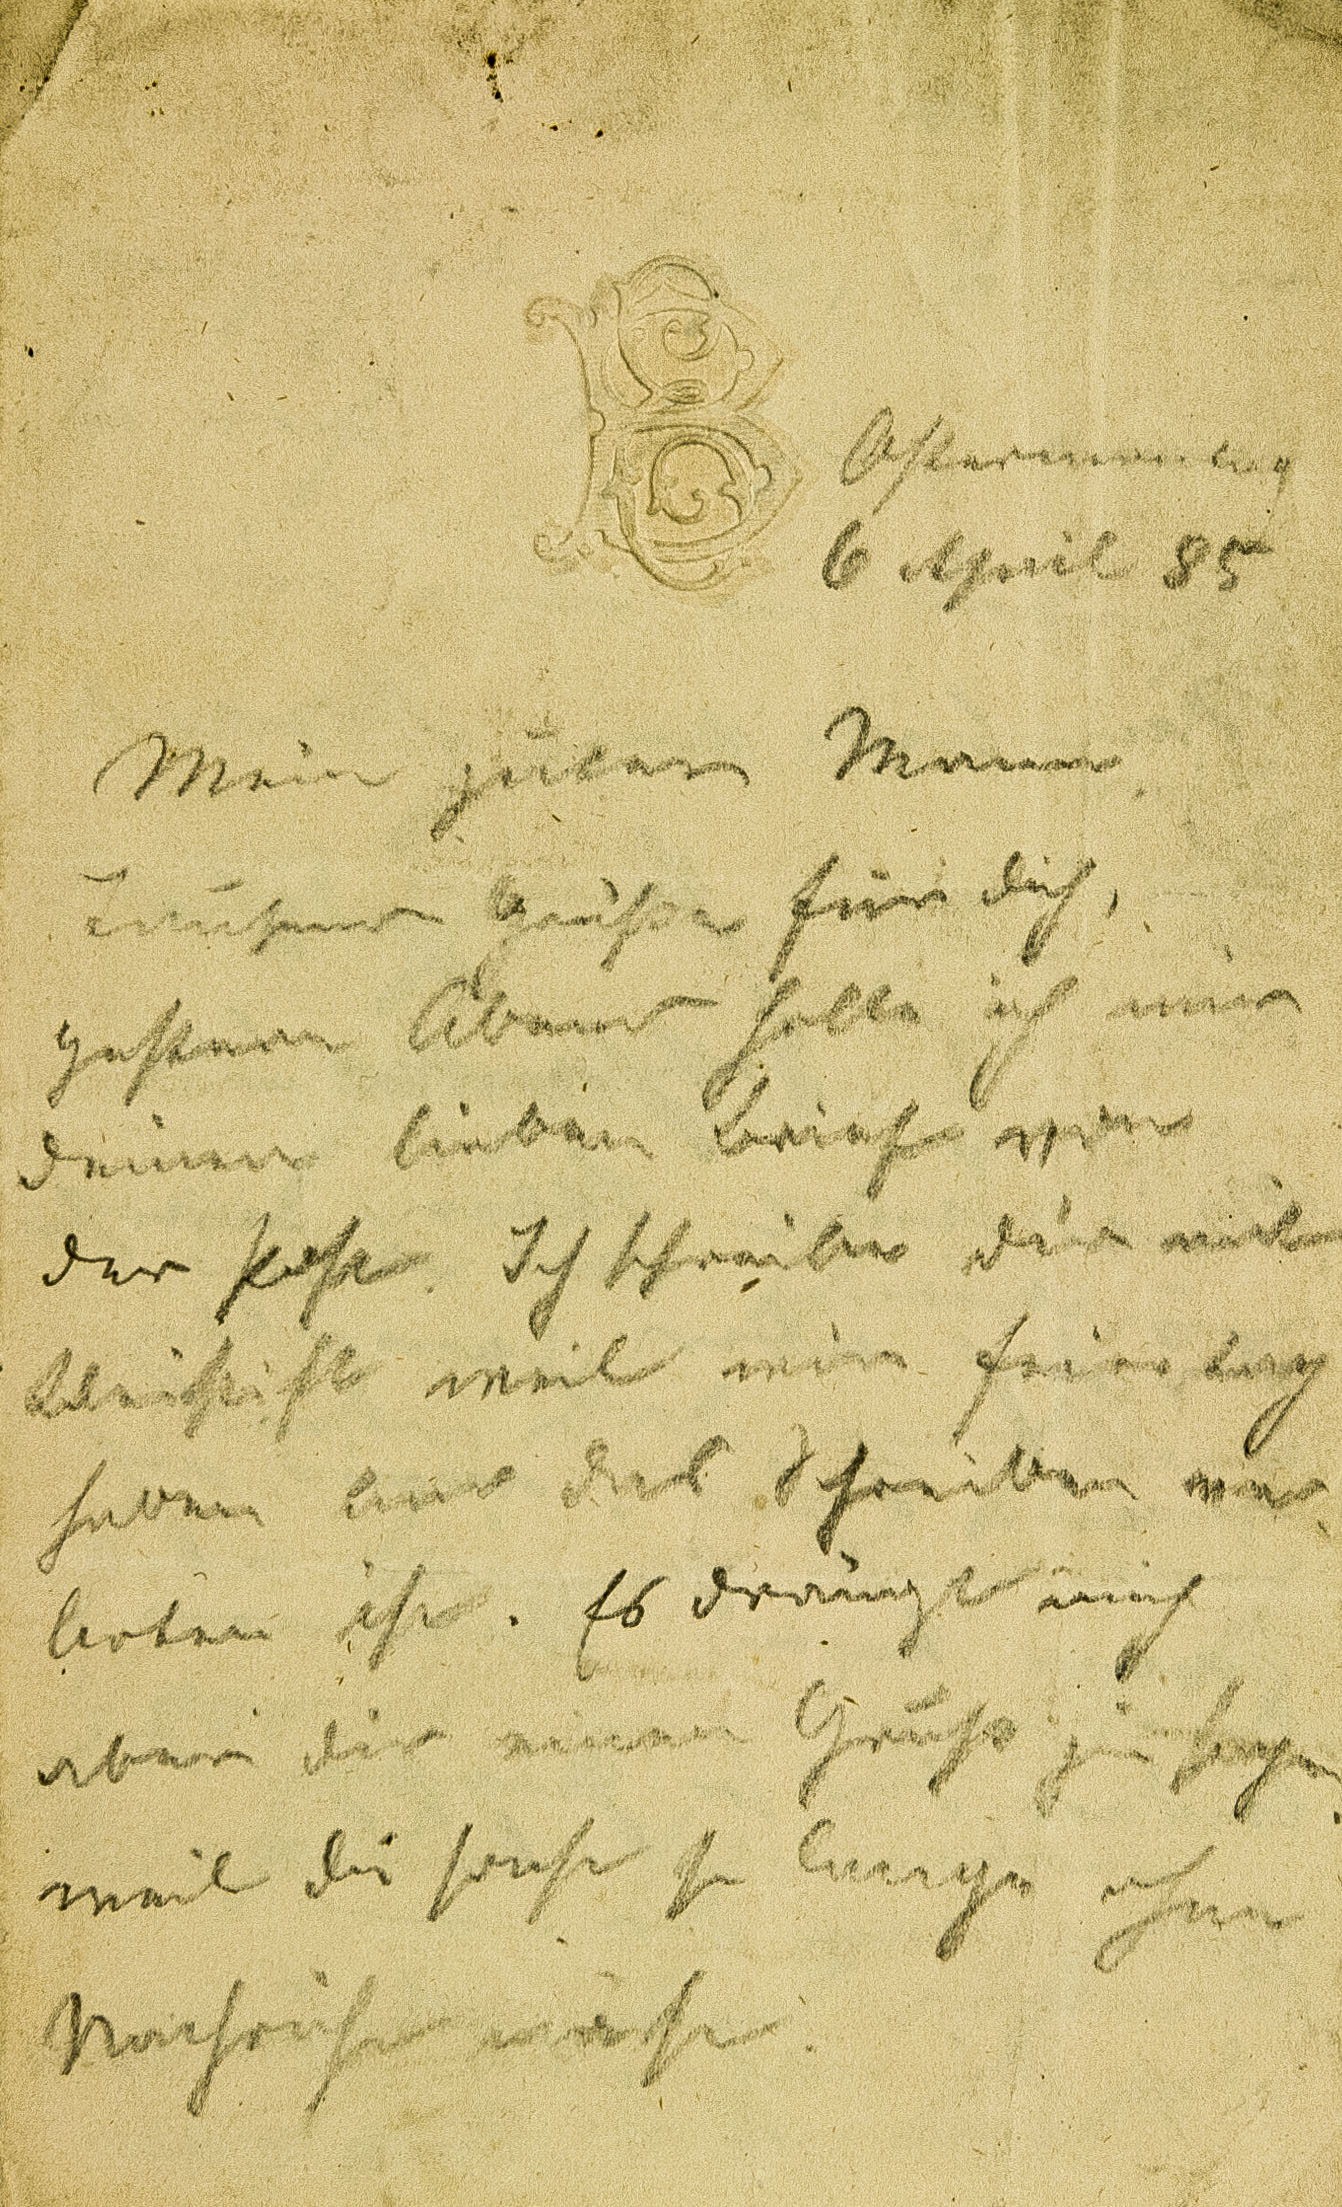 B
Ostermontag
6 April 85
Mein guter Mann.
Tausend Grüße für dich,
gestern Abend holte ich mir
deinen lieben Brief von
der Post. Ich schreibe dir mit
Bleistift weil wir Feiertag
haben und das Schreiben ver
boten ist. Es drängt mich
aber dir einen Gruß zu sagen
weil du sonst so lange ohne
Nachricht wärst.